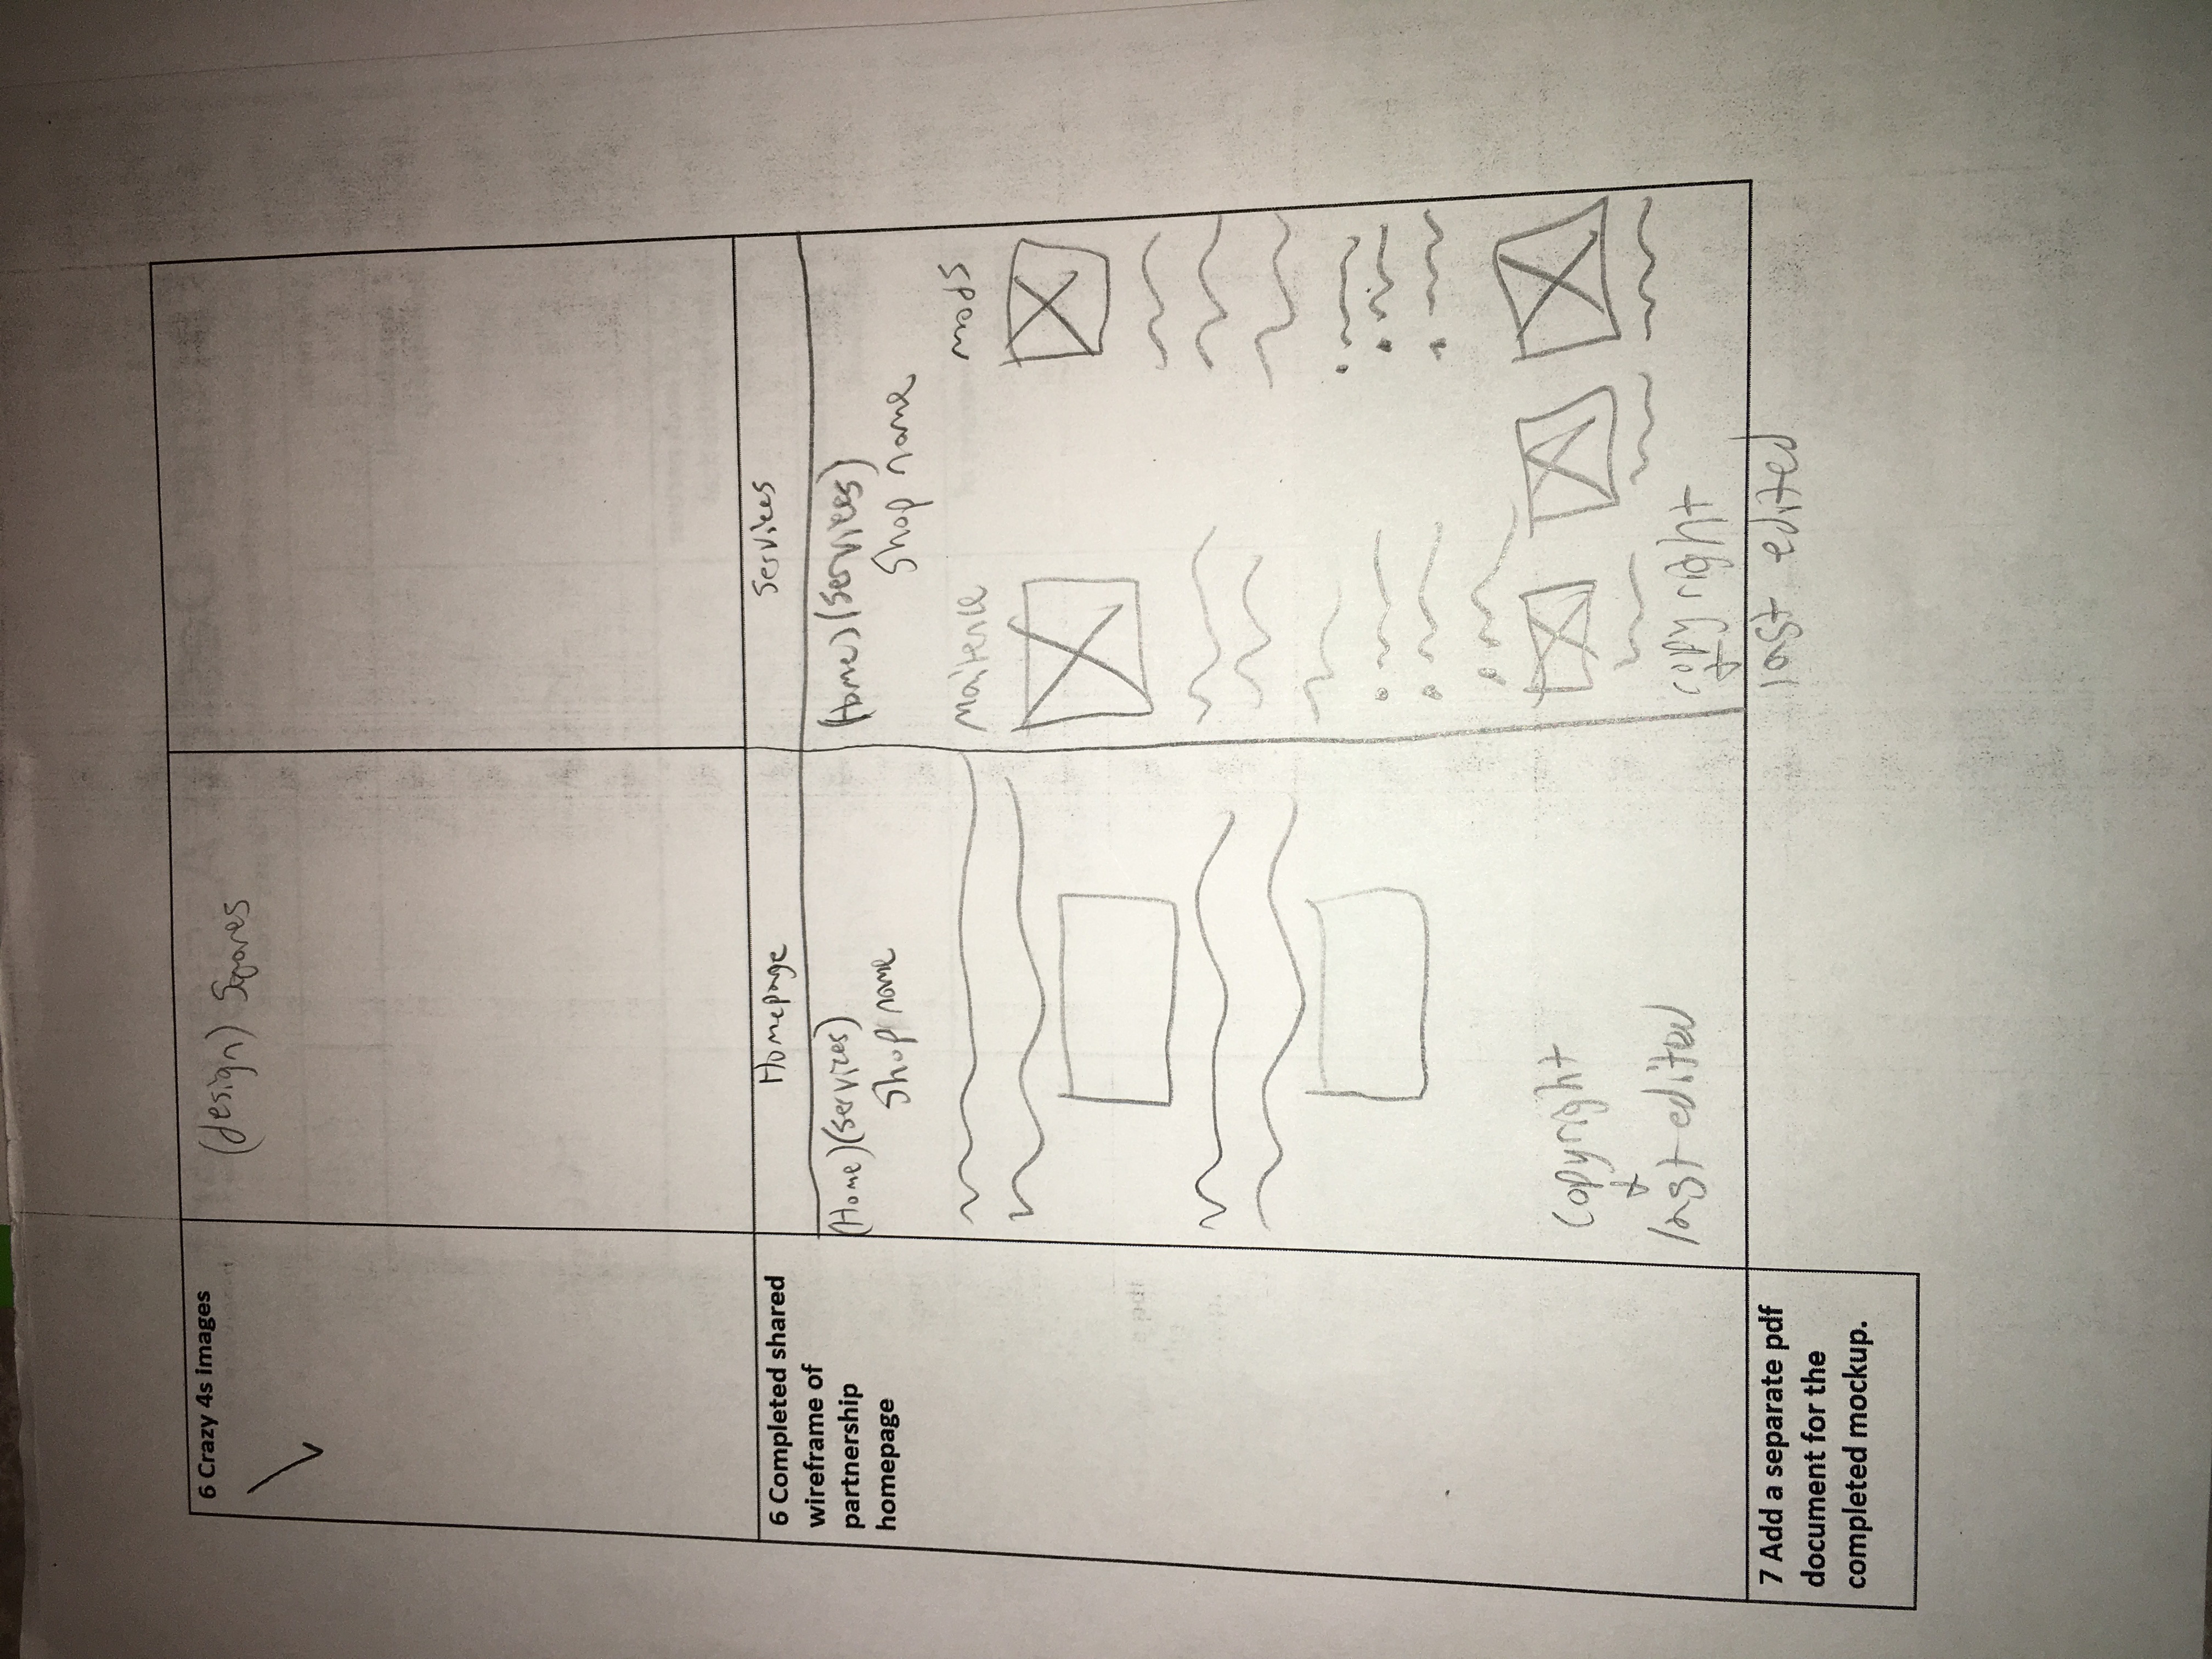 6 Crazy 4s images
(design) Squares
6 Completed shared
wireframe of
partnership
homepage
Homepage
(Home) (Services)
Shop name
Copyright
&
last edited
Services
(Home) (Services)
Shop name
Maitence
mods
copyright
&
last edited
7 Add a separate pdf
document for the
completed mockup.